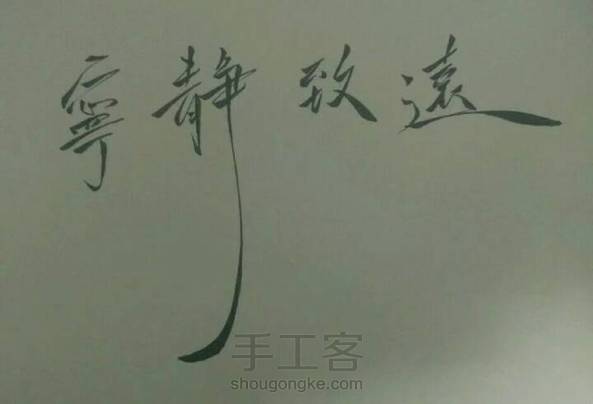 寧靜致遠
手工客
shougongke.com